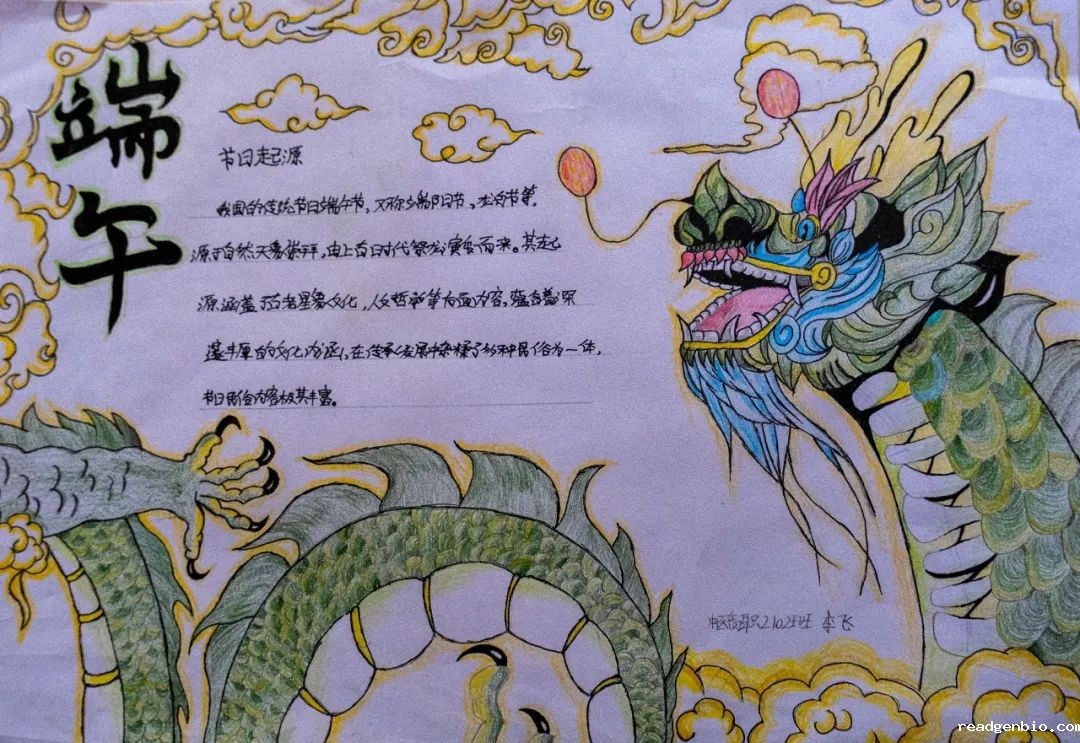 端午
节日起源
我国的传统节日端午节，又称端阳节，龙舟节等，
源于自然天象崇拜，由上古时代祭龙演变而来。其起
源涵盖了古老星象文化，人文哲学等方面内容，蕴含着深
邃丰厚的文化内涵，在传承发展中杂糅了多种民俗为一体，
节日民俗内容极其丰富。
2102班 李飞
readgenbio.com